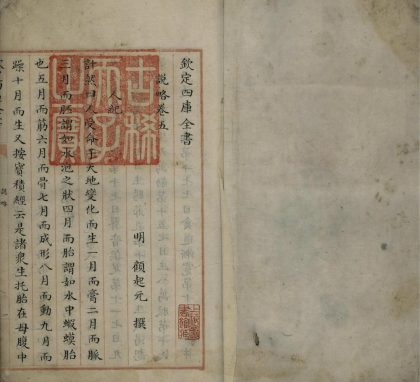 欽定四庫全書
說略卷五
明 顧起元 撰
人紀
計然曰人受命于天地變化而生一月而膏二月而脈
三月而胚謂如水泡之狀四月而胎謂如水中蝦蟆胎
也五月而筋六月而骨七月而成形八月而動九月而
躁十月而生又按寶積經云是諸衆生托胎在母腹中
說略
古稀天子之寶